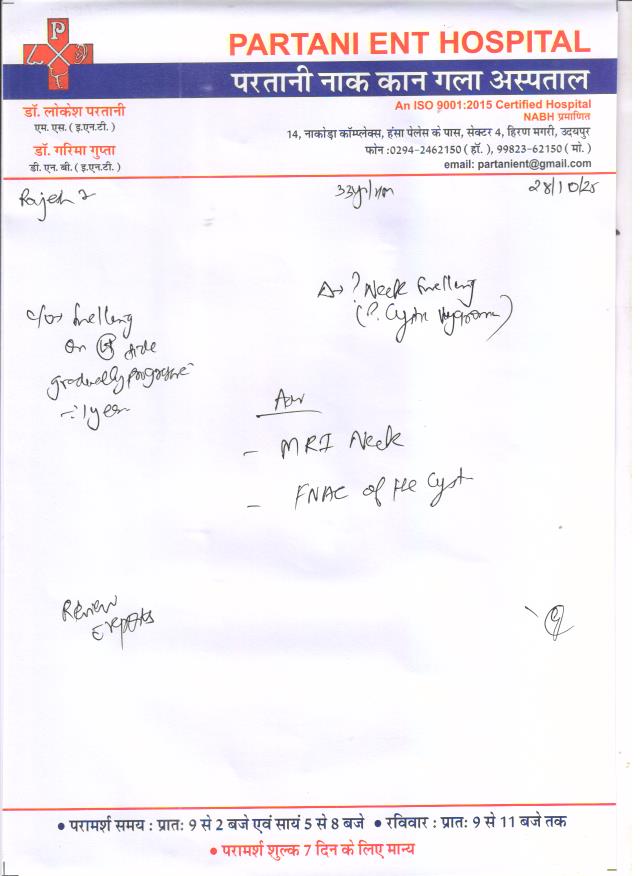 P
PARTANI ENT HOSPITAL
परतानी नाक कान गला अस्पताल
An ISO 9001:2015 Certified Hospital
NABH प्रमाणित
डॉ. लोकेश परतानी
एम. एस. ( इ.एन.टी. )
डॉ. गरिमा गुप्ता
डी. एन. बी. ( इ.एन.टी. )
14, नाकोड़ा कॉम्प्लेक्स, हंसा पेलेस के पास, सेक्टर 4, हिरण मगरी, उदयपुर
फोन :0294-2462150 ( हॉ. ), 99823-62150 ( मो. )
email: partanient@gmail.com
Rajesh
33yr/m
28/10/25
? Neck Swelling
(?. Cystic hygroma)
c/o Swelling
on side
gradually progressive
1 year
Adv
- MRI Neck
- FNAC of the Cyst
Review
reports
• परामर्श समय : प्रातः 9 से 2 बजे एवं सायं 5 से 8 बजे • रविवार : प्रातः 9 से 11 बजे तक
• परामर्श शुल्क 7 दिन के लिए मान्य